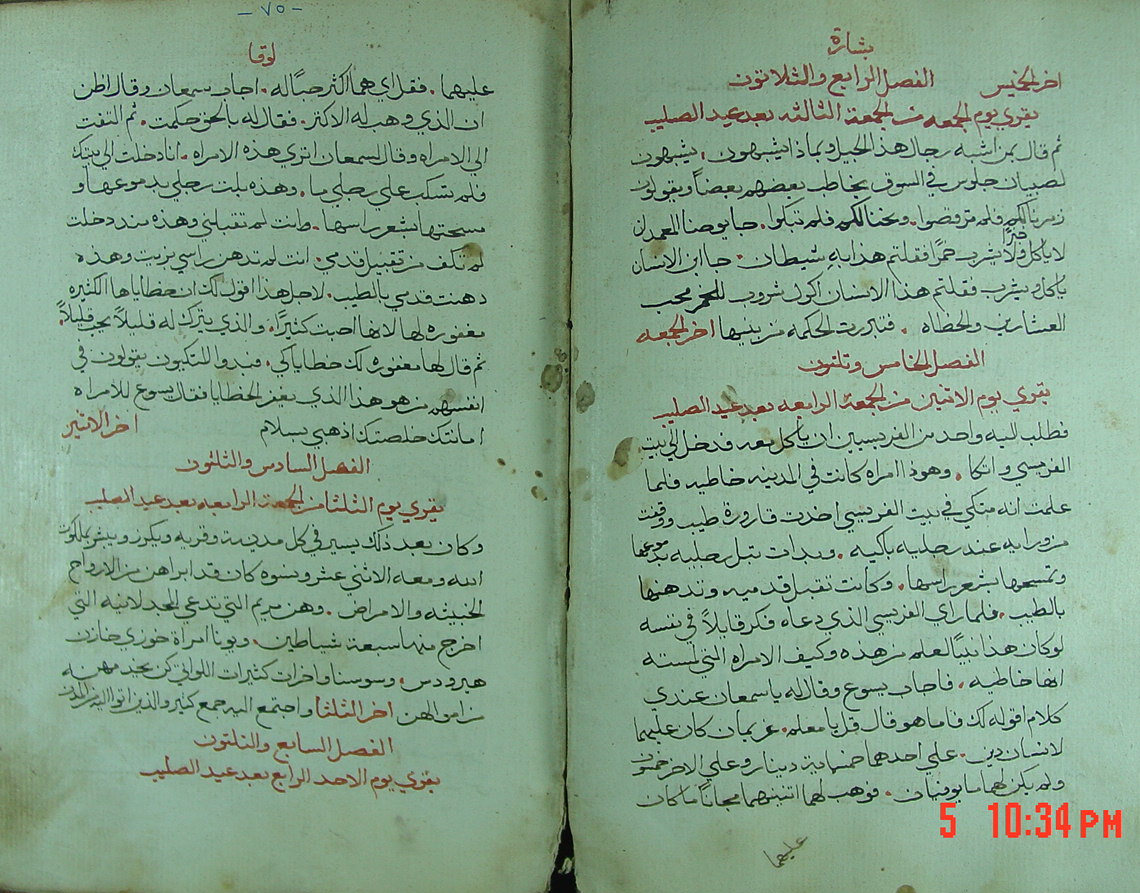 بشارة
اخر الخميس الفصل الرابع والثلاثون
يقري يوم الجمعه من الجمعة الثالثه بعد عيد الصليب
ثم قال بمن اشبه رجال هذا الجيل وبماذا يشبهون . يشبهون
لصبيان جلوس في السوق يخاطب بعضهم بعضاً ويقولون
زمرنا لكم فلم ترقصوا . ونحنا لكم فلم تبكوا . جا يوحنا المعمدان
لا ياكل خبزاً ولا يشرب خمرًا فقلتم هذا به شيطان . جا ابن الانسان
ياكل ويشرب فقلتم هذا الانسان اكول شروب للخمر محب
العشارين والخطاه . فتبررت الحكمه من بنيها اخر الجمعه
الفصل الخامس وتلتون
يقري يوم الاتنين من الجمعة الرابعه بعد عيد الصليب
فطلب اليه واحد من الفريسيين ان ياكل معه فدخل الي بيت
الفريسي واتكا . وهوذا امراه كانت في المدينه خاطيه فلما
علمت انه متكي في بيت الفريسي اخدت قارورة طيب ووقفت
من ورايه عند رجليه باكيه . وبدات تبل رجليه بدموعها
وتمسحها بشعر راسها . وكانت تقبل قدميه وتدهنها
بالطيب . فلما راي الفريسي الذي دعاه فكر قايلاً في نفسه
لو كان هذا نبياً لعلم من هذه وكيف الامراه التي لمسته
انها خاطيه . فاجاب يسوع وقال له يا سمعان عندي
كلام اقوله لك فاما هو قال قل يا معلم . غريمان كان عليهما
لانسان دين . علي احدهما خمسماية دينار وعلي الاخر خمسون
ولم يكن لهما ما يوفيان . فوهب لهما اتنينهما مجاناً ما كان
عليهما
5 10:34 PM
- ٧٥ -
لوقا
عليهما . فقل اي هما اكثر حباً له . اجاب سمعان وقال اظن
ان الذي وهب له الاكتر . فقال له بالحق حكمت . ثم التفت
الي الامراه وقال لسمعان اتري هذه الامراه . انا دخلت الي بيتك
فلم تسكب علي رجلي ما . وهذه بلت رجلي بدموعها و
مسحتها بشعر راسها . وانت لم تقبلني وهذه مند دخلت
لم تكف من تقبيل قدمي . انت لم تدهن راسي بزيت وهذه
دهنت قدمي بالطيب . لاجل هذا اقول لك ان خطاياها الكثيره
مغفوره لها لانها احبت كثيرًا . والذي يترك له قليلاً يحب قليلاً .
ثم قال لها مغفوره لك خطاياكي . فبدوا المتكيون يقولون في
انفسهم من هو هذا الذي يغفر الخطايا فقال يسوع للامراه
امانتك خلصتك اذهبي بسلام اخر الاثنين
الفصل السادس والتلتون
يقري يوم الثلثا من الجمعة الرابعه بعد عيد الصليب
وكان بعد ذلك يسير في كل مدينة وقريه ويكرز ويبشر بملكوت
الله ومعه الاثني عشر ونسوه كان قد ابراهن من الارواح
الخبيثه والامراض . وهن مريم التي تدعي المجدلانيه التي
اخرج منها سبعة شياطين . ويونا امراة خوزي خازن
هيرودس . وسوسنا واخرات كثيرات اللواتي كن يخدمنه
من اموالهن اخر الثلثا واجتمع اليه جمع كثير والذين اتوا اليه من المدن
الفصل السابع والتلتون
يقري يوم الاحد الرابع بعد عيد الصليب